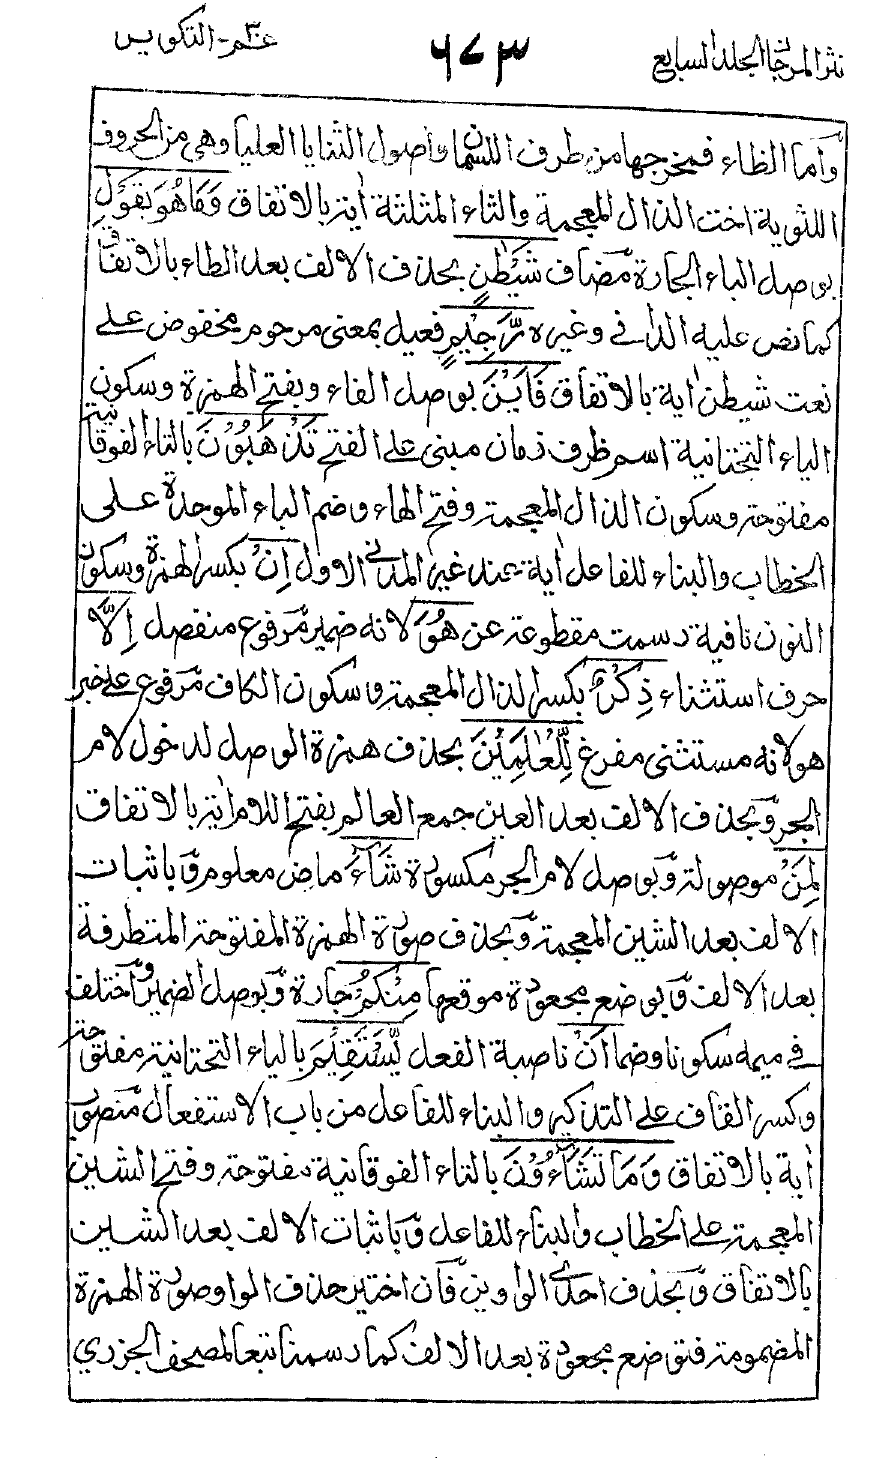 نثر المرجان الجلد السابع
٦٧٣
عم ٣٠ - التكوير
وأما الظاء فمخرجها من طرف اللسان وأصول الثنايا العليا وهي من الحروف
اللثوية اخت الذال المعجمة والثاء المثلثة اٰية بالاتفاق وَمَا هُوَ بِقَوْلِ
بوصل الباء الجارة مضاف شَيْطٰنٍ بحذف الالف بعد الطاء بالاتفاق
كما نص عليه الداني وغيره رَّجِيْمٍ فعيل بمعنى مرجوم مخفوض على
نعت شيطٰن اٰية بالاتفاق فَاَيْنَ بوصل الفاء وبفتح الهمزة وسكون
الياء التحتانية اسم ظرف زمان مبني على الفتح تَذْهَبُوْنَ بالتاء الفوقانية
مفتوحة وسكون الذال المعجمة وفتح الهاء وضم الباء الموحدة على
الخطاب والبناء للفاعل اٰية عند غير المدني الاول اِنْ بكسر الهمزة وسكون
النون نافية رسمت مقطوعة عن هُوَ لانه ضمير مرفوع منفصل اِلَّا
حرف استثناء ذِكْرٌ بكسر الذال المعجمة وسكون الكاف مرفوع على خبر
هو لانه مستثنى مفرغ لِّلْعٰلَمِيْنَ بحذف همزة الوصل لدخول لام
الجر وبحذف الالف بعد العين جمع العالم بفتح اللام اٰية بالاتفاق
لِمَنْ موصولة وبوصل لام الجر مكسورة شَآءَ ماض معلوم وباثبات
الالف بعد الشين المعجمة وبحذف صورة الهمزة المفتوحة المتطرفة
بعد الالف وبوضع مجعودة موقعها مِنْكُمْ جارة وبوصل الضمير واختلف
في ميمه سكونا وضما اَنْ ناصبة الفعل يَّسْتَقِيْمَ بالياء التحتانية مفتوحة
وكسر القاف على التذكير والبناء للفاعل من باب الاستفعال منصوب
اٰية بالاتفاق وَمَا تَشَآءُوْنَ بالتاء الفوقانية مفتوحة وفتح الشين
المعجمة على الخطاب والبناء للفاعل وباثبات الالف بعد الشين
بالاتفاق وبحذف احدى الواوين فان اختير حذف الواو صورة الهمزة
المضمومة فتوضع مجعودة بعد الالف كما رسمنا تبعا لمصحف الجزري